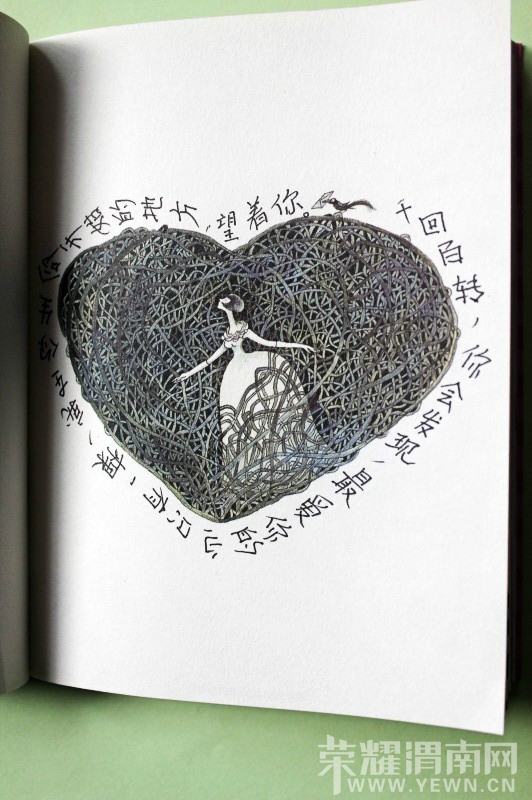 千回百转，你会发现，最爱你的心只有一颗，在你的地方，望着你。
荣耀渭南网
WWW.YEWN.CN